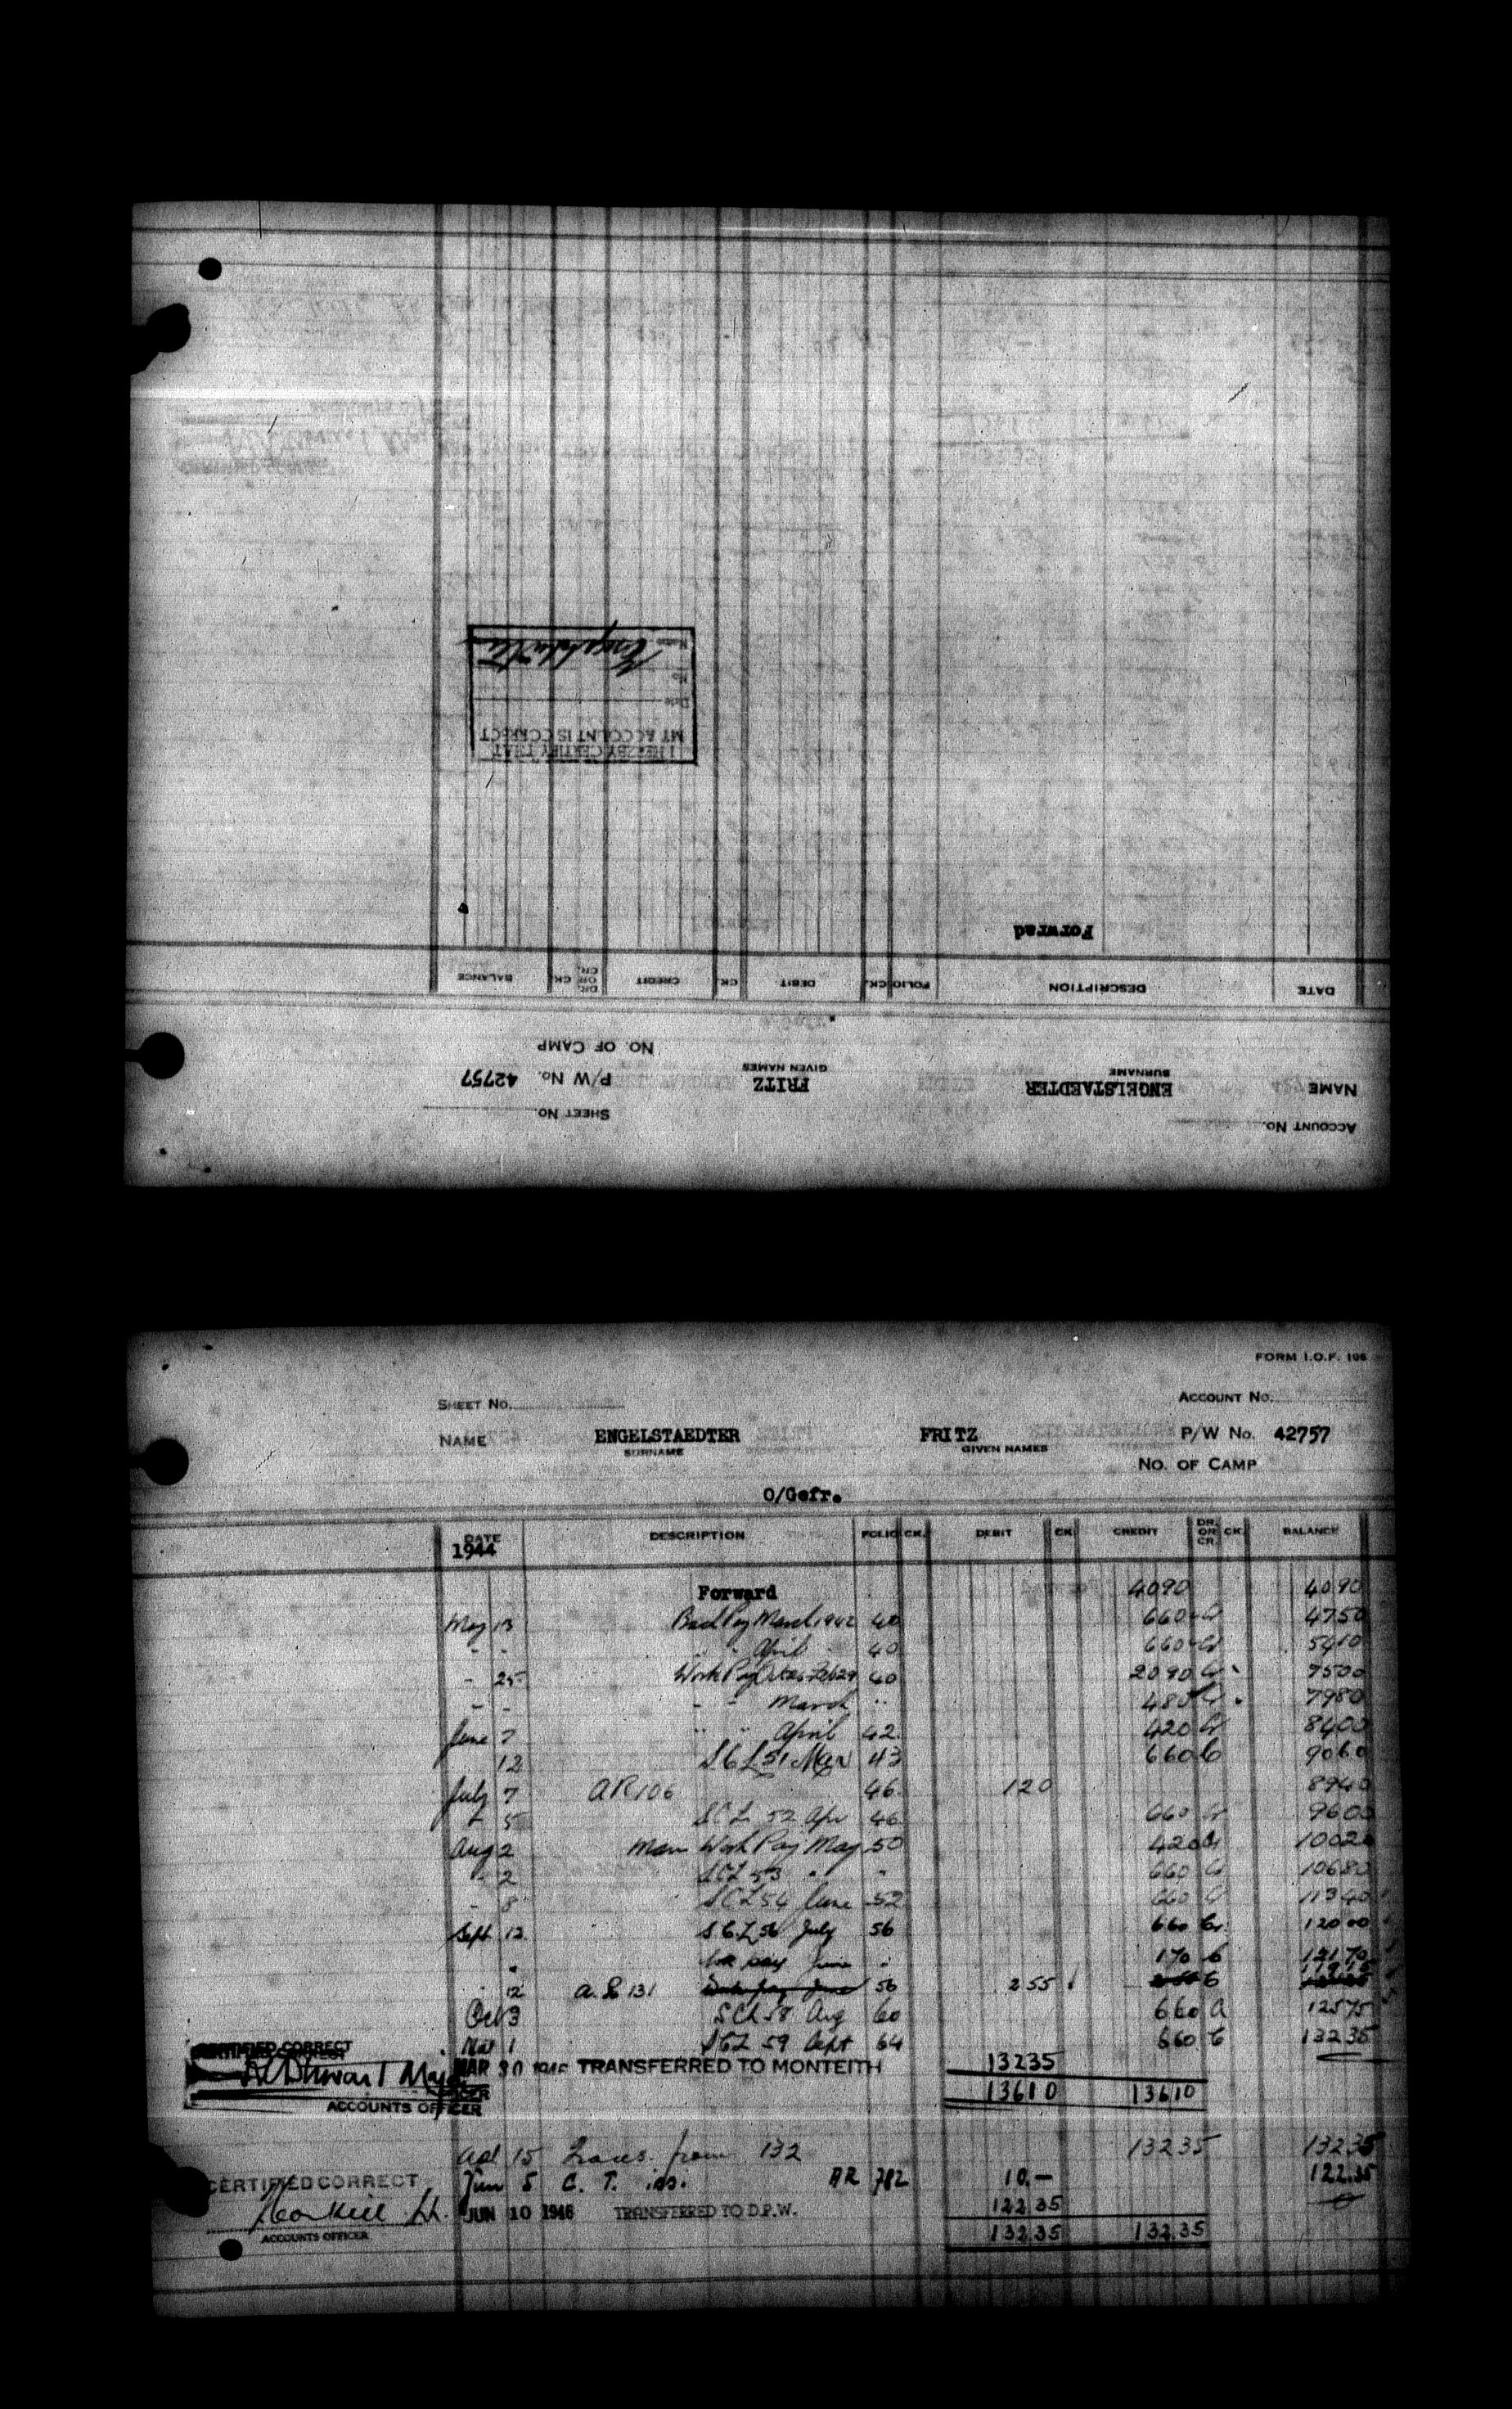 ACCOUNT No.
SHEET No.
NAME ENGELSTAEDTER FRITZ P/W No. 42757
SURNAME GIVEN NAMES
NO. OF CAMP
DATE DESCRIPTION FOLIO CK. DEBIT CK. CREDIT DR. OR CR. CK. BALANCE
Forwrad
I HEREBY CERTIFY THAT
MY ACCOUNT IS CORRECT
Date
No.
Name
FORM I.O.F. 106
SHEET No. ACCOUNT No.
NAME ENGELSTAEDTER FRITZ P/W No. 42757
SURNAME GIVEN NAMES
NO. OF CAMP
O/Gefr.
DATE DESCRIPTION FOLIO CK. DEBIT CK. CREDIT DR. OR CR. CK. BALANCE
1944
Forward 4090 4090
May 13 Back Pay March 1942 40 660 Cr 4750
" " " " April 40 660 Cr 5410
" 25 Work Pay 40 2090 Cr 7500
" " " " March " 480 Cr 7980
June 7 " " April 42 420 Cr 8400
12 SCL 51 43 660 Cr 9060
July 7 AR 106 46 120 8940
5 SCL 52 Apr 46 660 Cr 9600
Aug 2 Work Pay May 50 420 Cr 10020
" 2 SCL 53 " " 660 Cr 10680
" 8 SCL 54 June 52 660 Cr 11340
Sept 12 SCL 56 July 56 660 Cr. 12000
" pay June " 170 Cr 12170
" 12 131 56 255 11915
Oct 3 SCL 58 Aug 60 660 Cr 12575
Nov 1 SCL 59 Sept 64 660 Cr 13235
CERTIFIED CORRECT
MAR 30 TRANSFERRED TO MONTEITH 13235
13610 13610
ACCOUNTS OFFICER
15 Trans. from 132 13235 13235
CERTIFIED CORRECT
Jun 5 C. T. AR 782 10.- 122.35
JUN 10 1946 TRANSFERRED TO D.P.W. 122.35
132.35 132.35
ACCOUNTS OFFICER